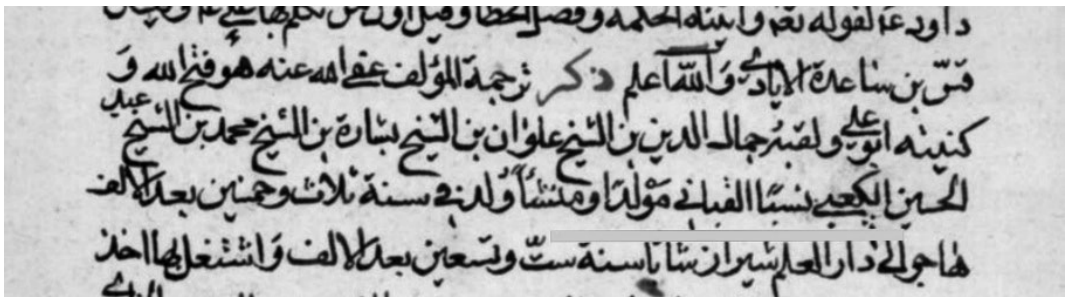 داود ع م لقوله تعه واتيناه الحكمة وفصل الخطاب وقيل اول من تكلم بها
قسّ بن ساعدة الايادي والله اعلم ذكر ترجمة المؤلف عفى الله عنه هو فتح الله و
كنيته ابو علي ولقبه جمال الدين بن الشيخ علوان بن الشيخ بشارة بن الشيخ محمد بن الشيخ عبد
الحسين الكعبي نسبًا القباني مولدًا ومنشأً ولد في سنة ثلاث وخمسين بعد الالف
هاجر الى دار العلم شيراز شابا سنة ستّ وتسعين بعد الالف واشتغل بها اخذ